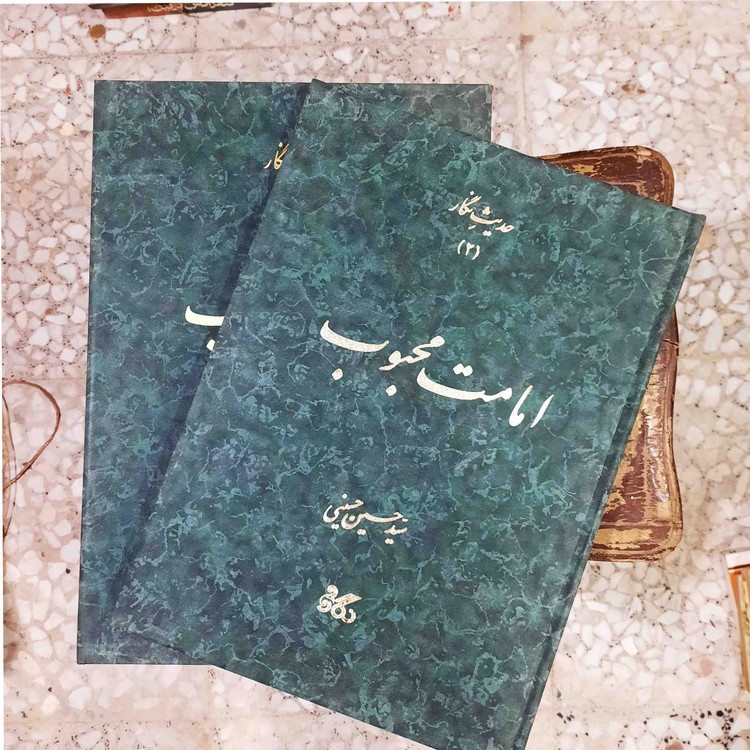 حدیث‌نگار
(۲)
امامت محبوب
سید حسین حسینی
نگار
ب